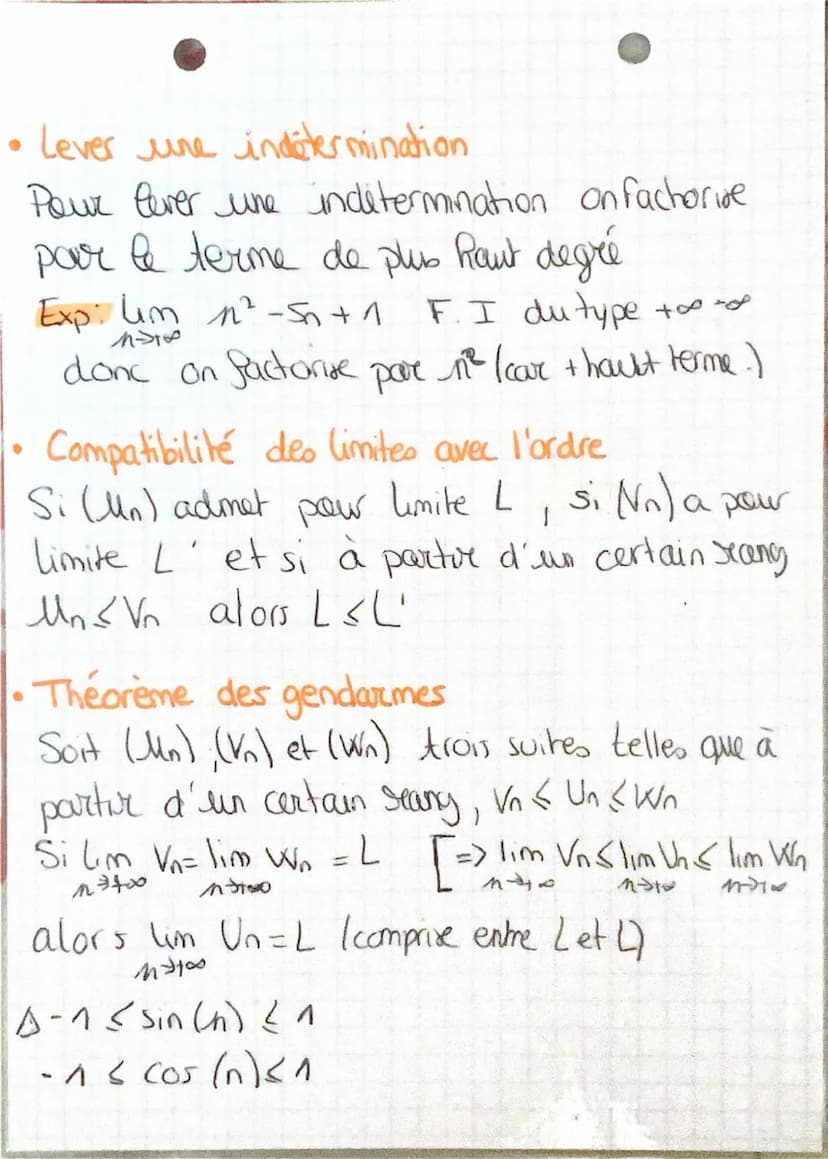 • Lever une indétermination
Pour lever une indétermination on factorise
par le terme de plus haut degré
Exp: lim n² - 5n + 1 F. I du type +∞ -∞
n→+∞
donc on factorise par n² (car + haut terme.)
• Compatibilité des limites avec l'ordre
Si (Un) admet pour limite L, si (Vn) a pour
limite L' et si à partir d'un certain rang
Un ≤ Vn alors L ≤ L'
• Théorème des gendarmes
Soit (Un), (Vn) et (Wn) trois suites telles que à
partir d'un certain rang, Vn ≤ Un ≤ Wn
Si lim Vn = lim Wn = L [=> lim Vn ≤ lim Un ≤ lim Wn
n→+∞ n→+∞ n→+∞ n→+∞ n→+∞
alors lim Un = L (comprise entre L et L)
n→+∞
Δ -1 ≤ sin(n) ≤ 1
-1 ≤ cos(n) ≤ 1